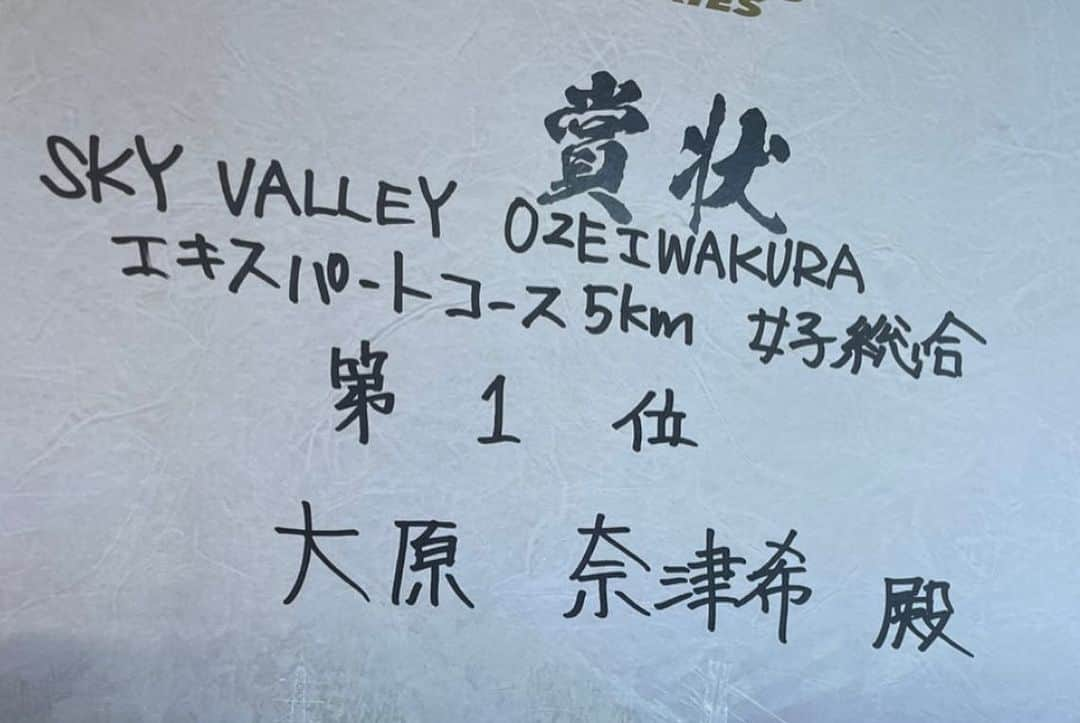 賞状
SKY VALLEY OZEIWAKURA
エキスパートコース5km 女子総合
第1位
大原 奈津希 殿